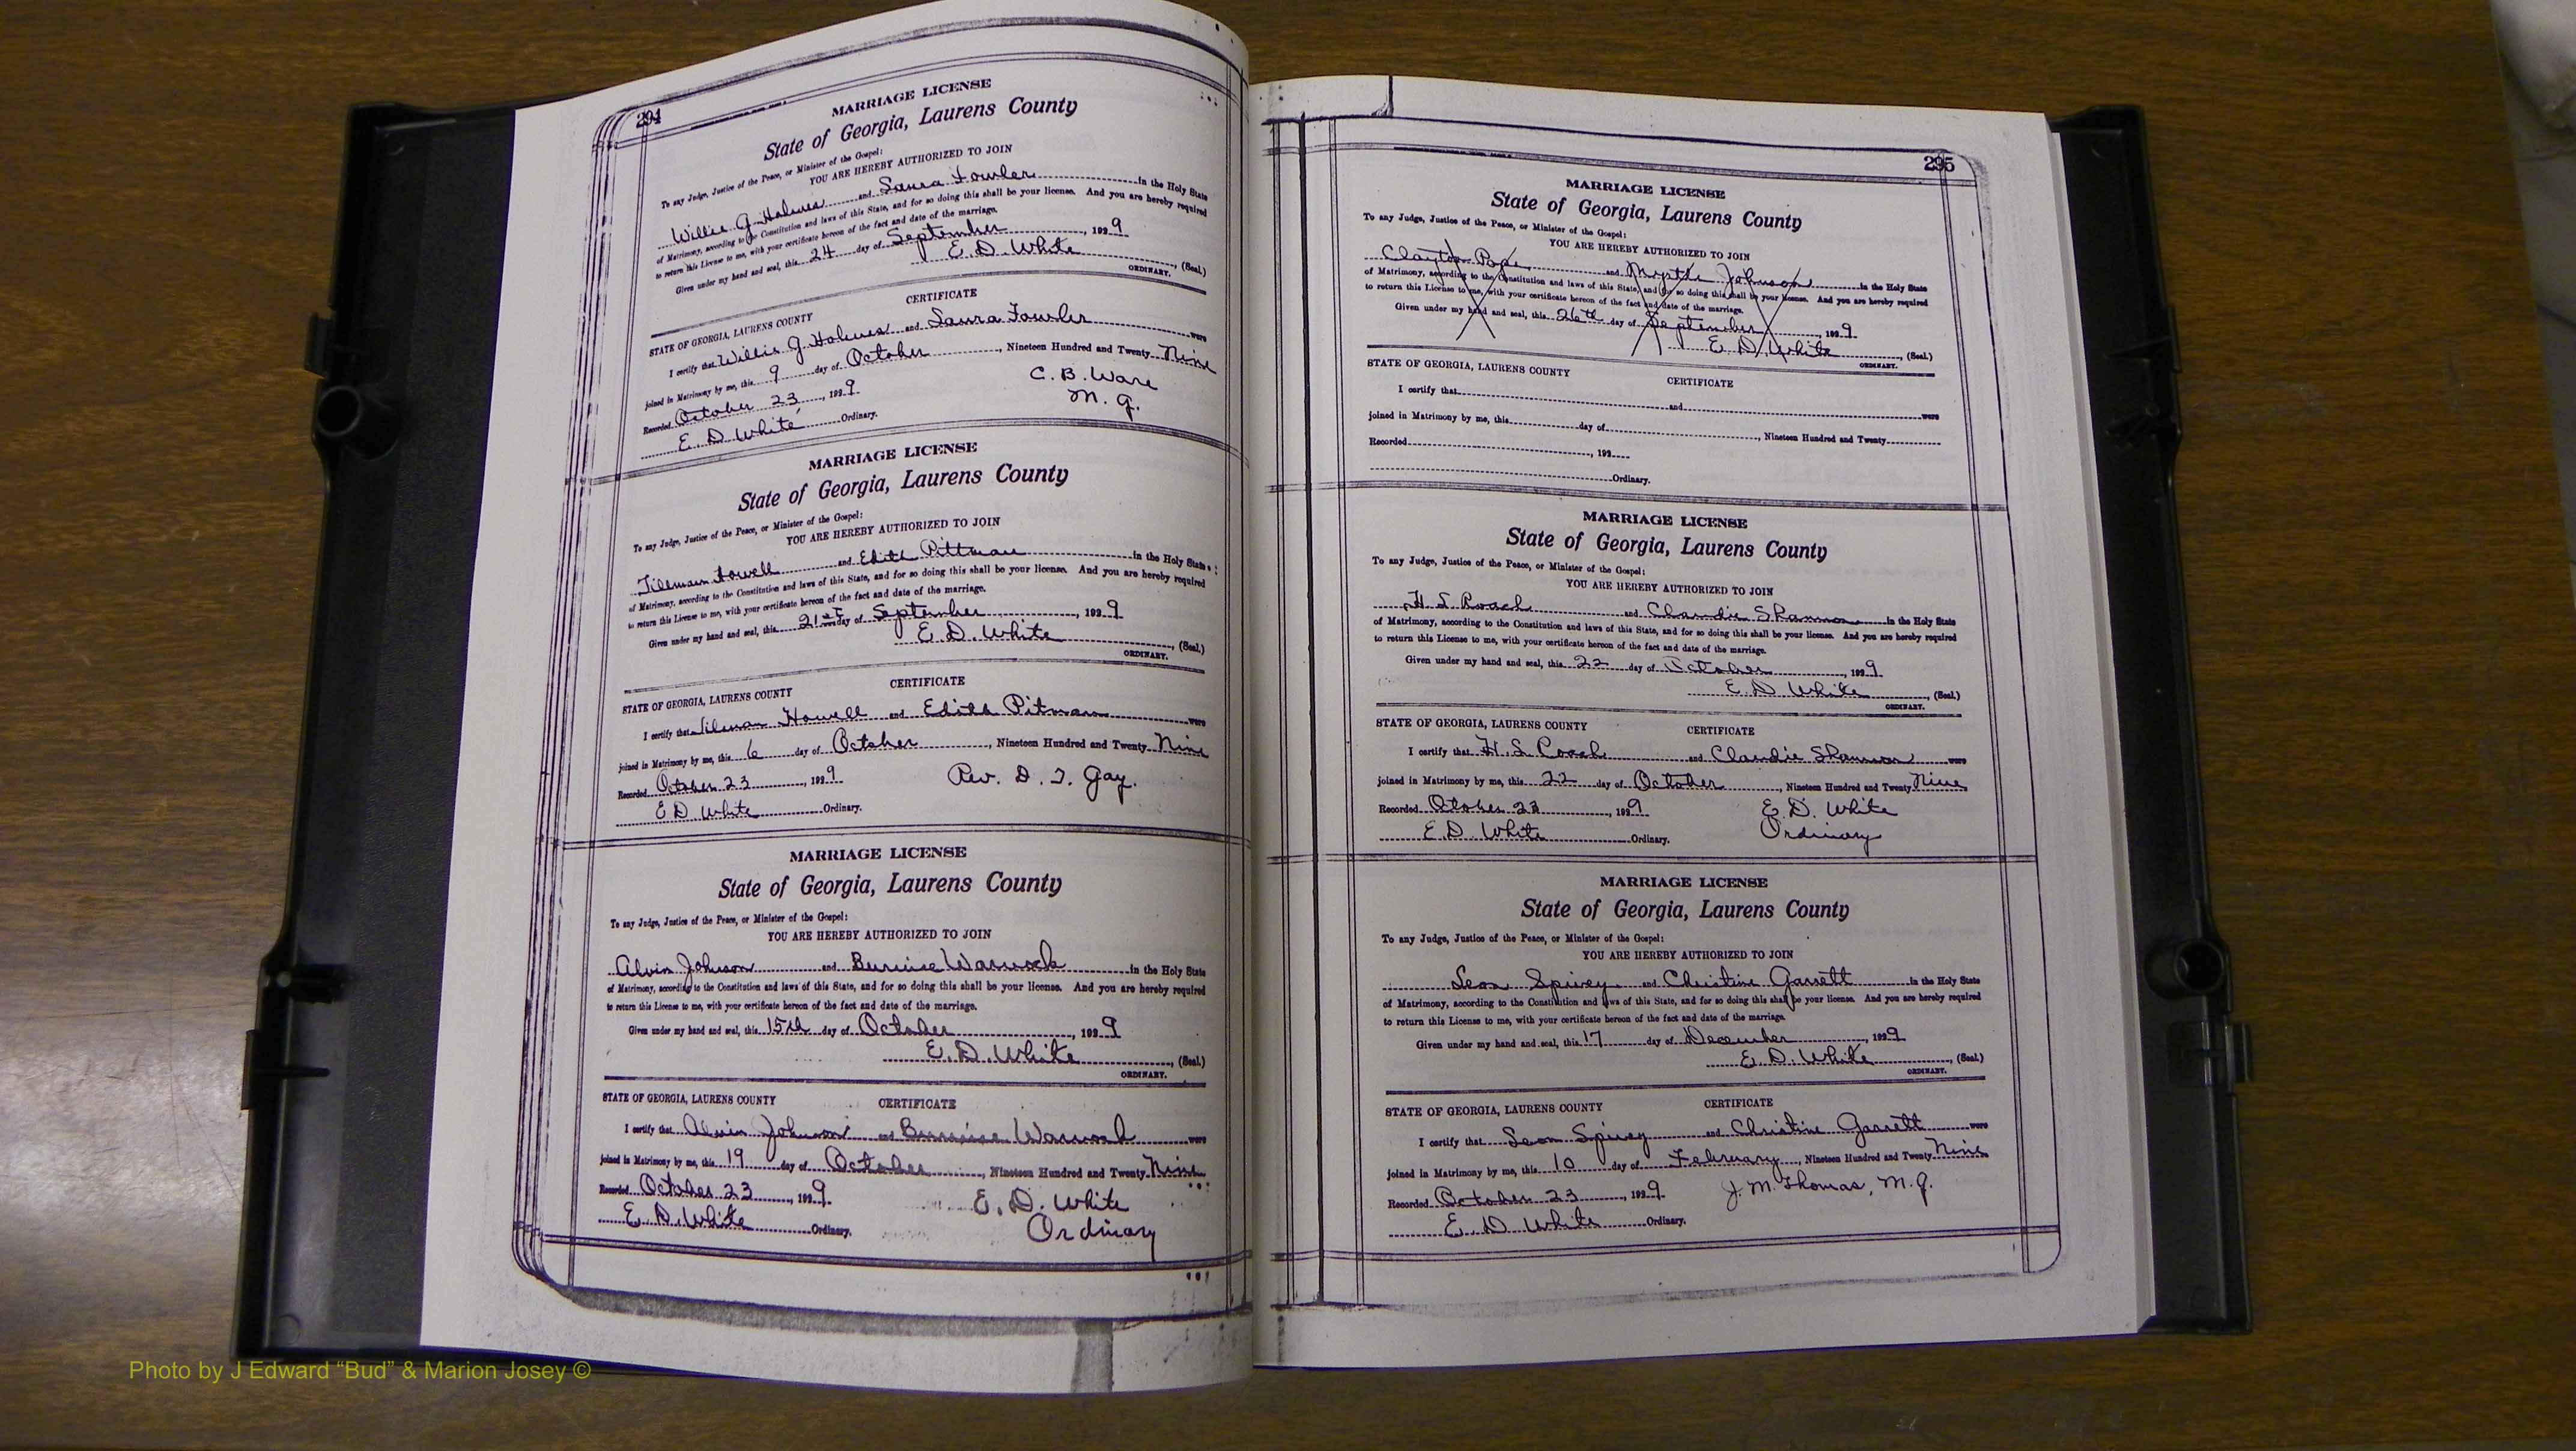 294
MARRIAGE LICENSE
State of Georgia, Laurens County
To any Judge, Justice of the Peace, or Minister of the Gospel:
YOU ARE HEREBY AUTHORIZED TO JOIN
Willie J. Holmes and Laura Fowler in the Holy State
of Matrimony, according to the Constitution and laws of this State, and for so doing this shall be your license. And you are hereby required
to return this License to me, with your certificate hereon of the fact and date of the marriage.
Given under my hand and seal, this 24 day of September, 1929
E. D. White, (Seal.)
ORDINARY.
CERTIFICATE
STATE OF GEORGIA, LAURENS COUNTY
I certify that Willie J Holmes and Laura Fowler were
joined in Matrimony by me, this 9 day of October, Nineteen Hundred and Twenty Nine
Recorded October 23, 1929. C. B. Ware
E. D White Ordinary. M. G.
MARRIAGE LICENSE
State of Georgia, Laurens County
To any Judge, Justice of the Peace, or Minister of the Gospel:
YOU ARE HEREBY AUTHORIZED TO JOIN
Tillman Howell and Edith Pittman in the Holy State
of Matrimony, according to the Constitution and laws of this State, and for so doing this shall be your license. And you are hereby required
to return this License to me, with your certificate hereon of the fact and date of the marriage.
Given under my hand and seal, this 21st day of September, 1929
E. D. White, (Seal.)
ORDINARY.
CERTIFICATE
STATE OF GEORGIA, LAURENS COUNTY
I certify that Tilman Howell and Edith Pitman were
joined in Matrimony by me, this 6 day of October, Nineteen Hundred and Twenty Nine
Recorded October 23, 1929. Rev. D. T. Gay.
E D White Ordinary.
MARRIAGE LICENSE
State of Georgia, Laurens County
To any Judge, Justice of the Peace, or Minister of the Gospel:
YOU ARE HEREBY AUTHORIZED TO JOIN
Alvin Johnson and Burnice Warnock in the Holy State
of Matrimony, according to the Constitution and laws of this State, and for so doing this shall be your license. And you are hereby required
to return this License to me, with your certificate hereon of the fact and date of the marriage.
Given under my hand and seal, this 15th day of October, 1929
E. D. White, (Seal.)
ORDINARY.
STATE OF GEORGIA, LAURENS COUNTY CERTIFICATE
I certify that Alvin Johnson and Burnice Warnock were
joined in Matrimony by me, this 19 day of October, Nineteen Hundred and Twenty Nine
Recorded October 23, 1929. E. D. White
E. D. White Ordinary. Ordinary
295
MARRIAGE LICENSE
State of Georgia, Laurens County
To any Judge, Justice of the Peace, or Minister of the Gospel:
YOU ARE HEREBY AUTHORIZED TO JOIN
Clayton Pope and Myrtle Johnson in the Holy State
of Matrimony, according to the Constitution and laws of this State, and for so doing this shall be your license. And you are hereby required
to return this License to me, with your certificate hereon of the fact and date of the marriage.
Given under my hand and seal, this 26th day of September, 1929
E. D. White, (Seal.)
ORDINARY.
STATE OF GEORGIA, LAURENS COUNTY CERTIFICATE
I certify that and were
joined in Matrimony by me, this day of, Nineteen Hundred and Twenty
Recorded, 192
Ordinary.
MARRIAGE LICENSE
State of Georgia, Laurens County
To any Judge, Justice of the Peace, or Minister of the Gospel:
YOU ARE HEREBY AUTHORIZED TO JOIN
H. S. Roach and Claudie Shannon in the Holy State
of Matrimony, according to the Constitution and laws of this State, and for so doing this shall be your license. And you are hereby required
to return this License to me, with your certificate hereon of the fact and date of the marriage.
Given under my hand and seal, this 22 day of October, 1929
E. D White, (Seal.)
ORDINARY.
STATE OF GEORGIA, LAURENS COUNTY CERTIFICATE
I certify that H. S. Roach and Claudie Shannon were
joined in Matrimony by me, this 22 day of October, Nineteen Hundred and Twenty Nine
Recorded October 23, 1929. E. D. White
E. D. White Ordinary. Ordinary
MARRIAGE LICENSE
State of Georgia, Laurens County
To any Judge, Justice of the Peace, or Minister of the Gospel:
YOU ARE HEREBY AUTHORIZED TO JOIN
Leon Spivey and Christine Garrett in the Holy State
of Matrimony, according to the Constitution and laws of this State, and for so doing this shall be your license. And you are hereby required
to return this License to me, with your certificate hereon of the fact and date of the marriage.
Given under my hand and seal, this 17 day of December, 1929
E. D. White, (Seal.)
ORDINARY.
STATE OF GEORGIA, LAURENS COUNTY CERTIFICATE
I certify that Leon Spivey and Christine Garrett were
joined in Matrimony by me, this 10 day of February, Nineteen Hundred and Twenty Nine
Recorded October 23, 1929 J. M. Thomas, M. G.
E. D White Ordinary.
Photo by J Edward “Bud” & Marion Josey ©